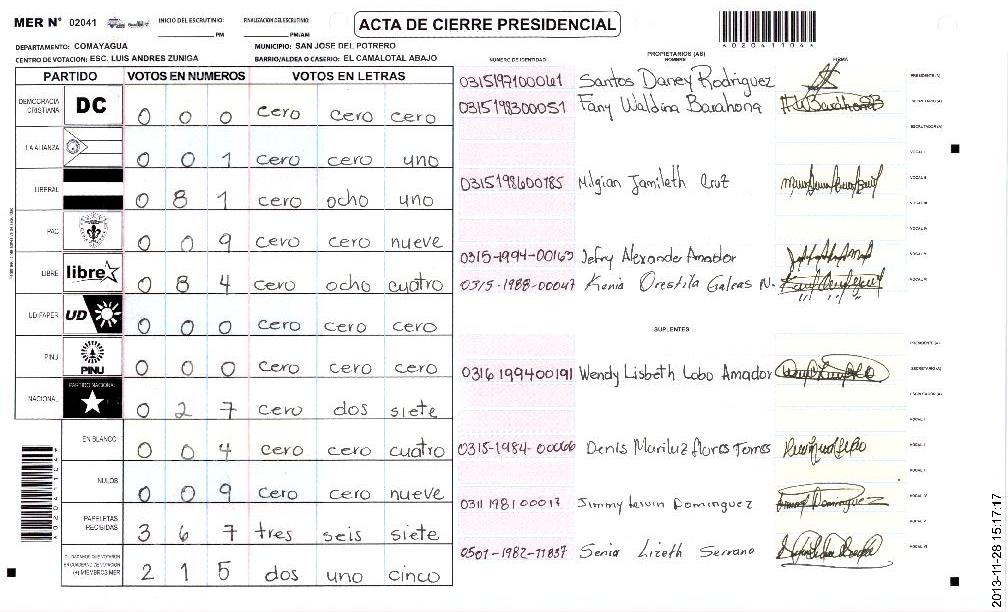 MER N° 02041 INICIO DEL ESCRUTINIO: PM FINALIZACION DEL ESCRUTINIO: PM/AM
ACTA DE CIERRE PRESIDENCIAL
DEPARTAMENTO: COMAYAGUA MUNICIPIO: SAN JOSE DEL POTRERO
CENTRO DE VOTACION: ESC. LUIS ANDRES ZUNIGA BARRIO/ALDEA O CASERIO: EL CAMALOTAL ABAJO
PARTIDO VOTOS EN NUMEROS VOTOS EN LETRAS
DEMOCRACIA CRISTIANA DC 0 0 0 cero cero cero
LA ALIANZA 0 0 1 cero cero uno
LIBERAL 0 8 1 cero ocho uno
PAC 0 0 9 cero cero nueve
LIBRE libre 0 8 4 cero ocho cuatro
UD FAPER UD 0 0 0 cero cero cero
PINU PINU 0 0 0 cero cero cero
NACIONAL PARTIDO NACIONAL 0 2 7 cero dos siete
EN BLANCO 0 0 4 cero cero cuatro
NULOS 0 0 9 cero cero nueve
PAPELETAS RECIBIDAS 3 6 7 tres seis siete
CIUDADANOS QUE VOTARON EN CUADERNO DE VOTACION (+) MIEMBROS MER 2 1 5 dos uno cinco
A02041104
PROPIETARIOS (AS)
NUMERO DE IDENTIDAD NOMBRE FIRMA
0315197100061 Santos Daney Rodriguez PRESIDENTE (A)
0315198300051 Fany Waldina Barahona SECRETARIO (A)
ESCRUTADOR (A)
VOCAL I
0315198600785 Milgian Jamileth Cruz VOCAL II
VOCAL III
VOCAL IV
0315-1994-00163 Jefry Alexander Amador VOCAL V
0315-1988-00047 Kenia Orestila Galeas N. VOCAL VI
SUPLENTES
PRESIDENTE (A)
0316199400191 Wendy Lisbeth Lobo Amador SECRETARIO (A)
ESCRUTADOR (A)
VOCAL I
0315-1984-00066 Denis Mariluz flores Torres
VOCAL IV
0311198100017 Jimmy Dominguez
VOCAL V
0501-1982-11837 Senia Lizeth Serrano VOCAL VI
2013-11-28 15:17:17